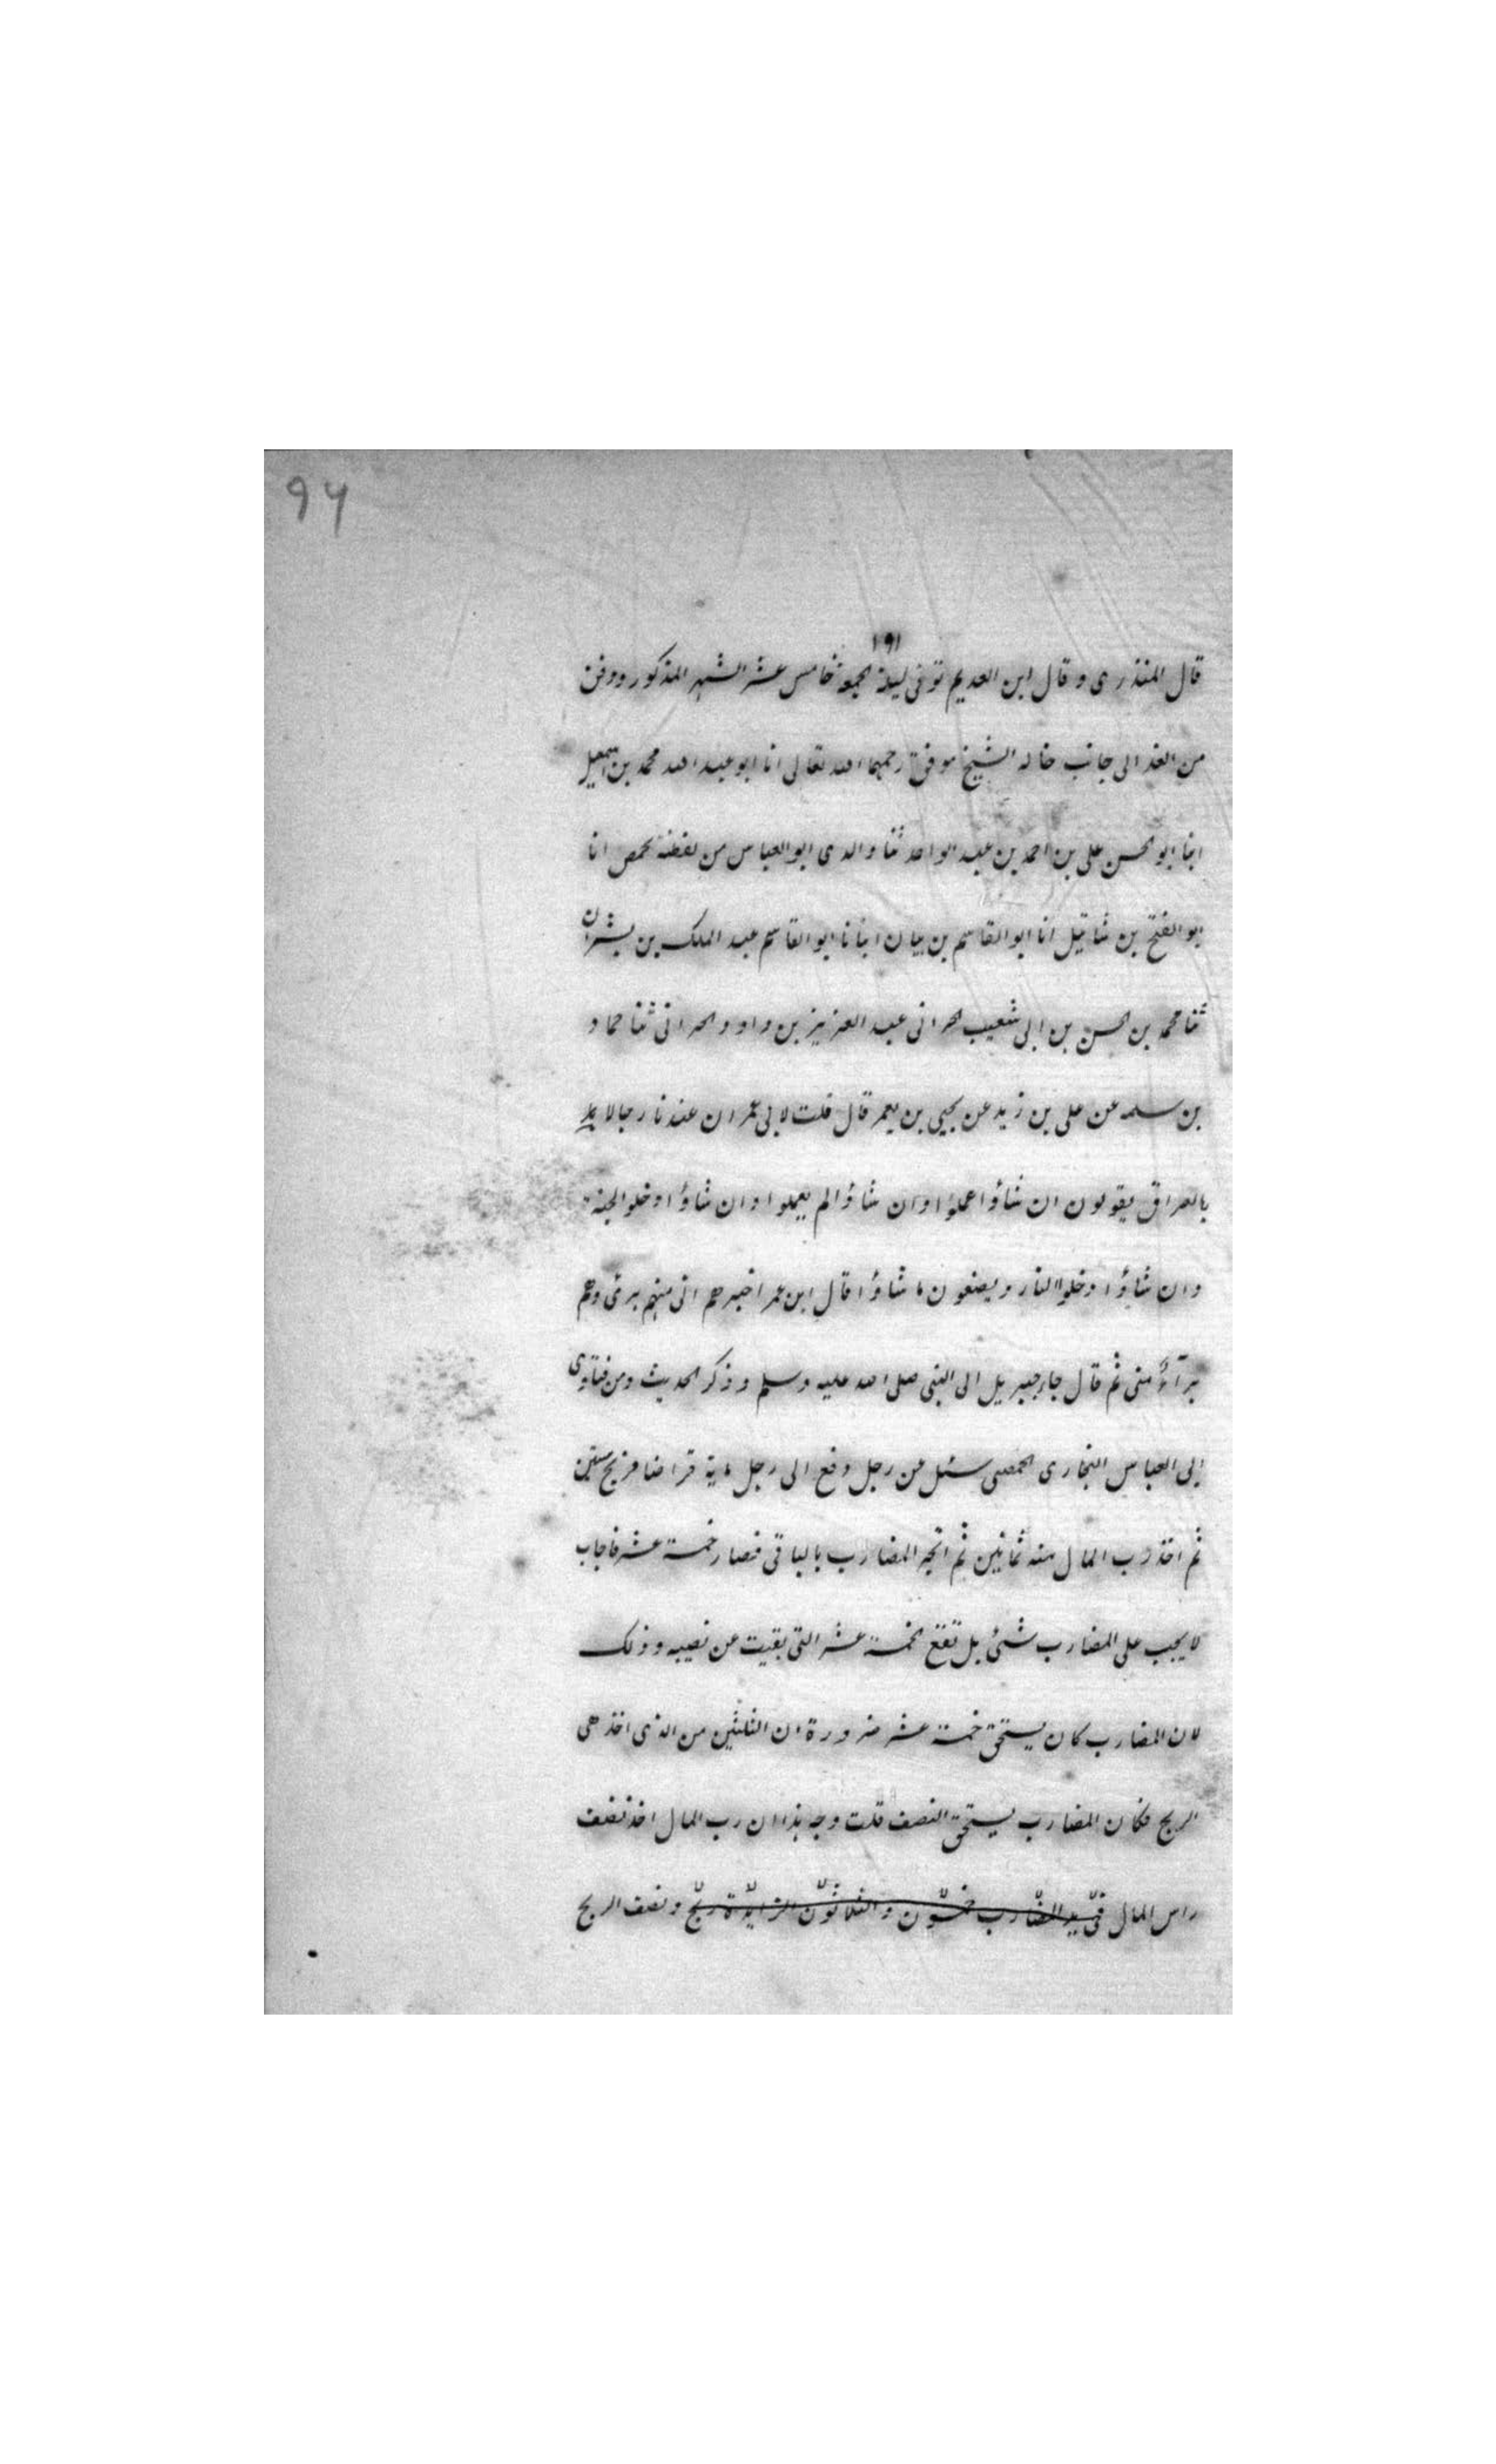 ۹۶
۱۹۱
قال المنذرى و قال ابن العديم توفى ليلة الجمعة خامس عشر الشهر المذكور ودفن
من الغد الى جانب خاله الشيخ موفق رحمهما الله تعالى انا ابو عبد الله محمد بن اسمعيل
ابنا ابو الحسن على بن احمد بن عبد الواحد ثنا والدى ابو العباس من لفظه بحمص انا
ابو الفتح بن شاتيل انا ابو القاسم بن بيان ابنا نا ابو القاسم عبد الملك بن بشران
ثنا محمد بن الحسن بن ابى شعيب الحرانى عبد العزيز بن داود الحرانى ثنا حماد
بن سلمه عن على بن زيد عن يحيى بن يعمر قال قلت لابى عمر ان عندنا رجالا
بالعراق يقولون ان شاؤا عملوا وان شاؤا لم يعملوا وان شاؤا دخلوا الجنة
وان شاؤا دخلوا النار و يصنعون ما شاؤا قال ابن عمر اخبرهم انى منهم برئ وهم
برآء منى ثم قال جاء جبريل الى النبى صلى الله عليه وسلم وذكر الحديث ومن فتاوى
ابى العباس البخارى الحمصى سئل عن رجل دفع الى رجل ماية قراضا فربح ستين
ثم اخذ رب المال منه ثمانين ثم اتجر المضارب بالباقى فصار خمسة عشر فاجاب
لا يجب على المضارب شئ بل تقع الخمسة عشر التى بقيت عن نصيبه وذلك
لان المضارب كان يستحق خمسة عشر ضرورة ان الثلثين من الذى اخذ هى
الربح فكان المضارب يستحق النصف قلت وجه هذا ان رب المال اخذ نصف
راس المال فى يد المضارب خمسون والثلاثون الزايدة ربح ونصف الربح